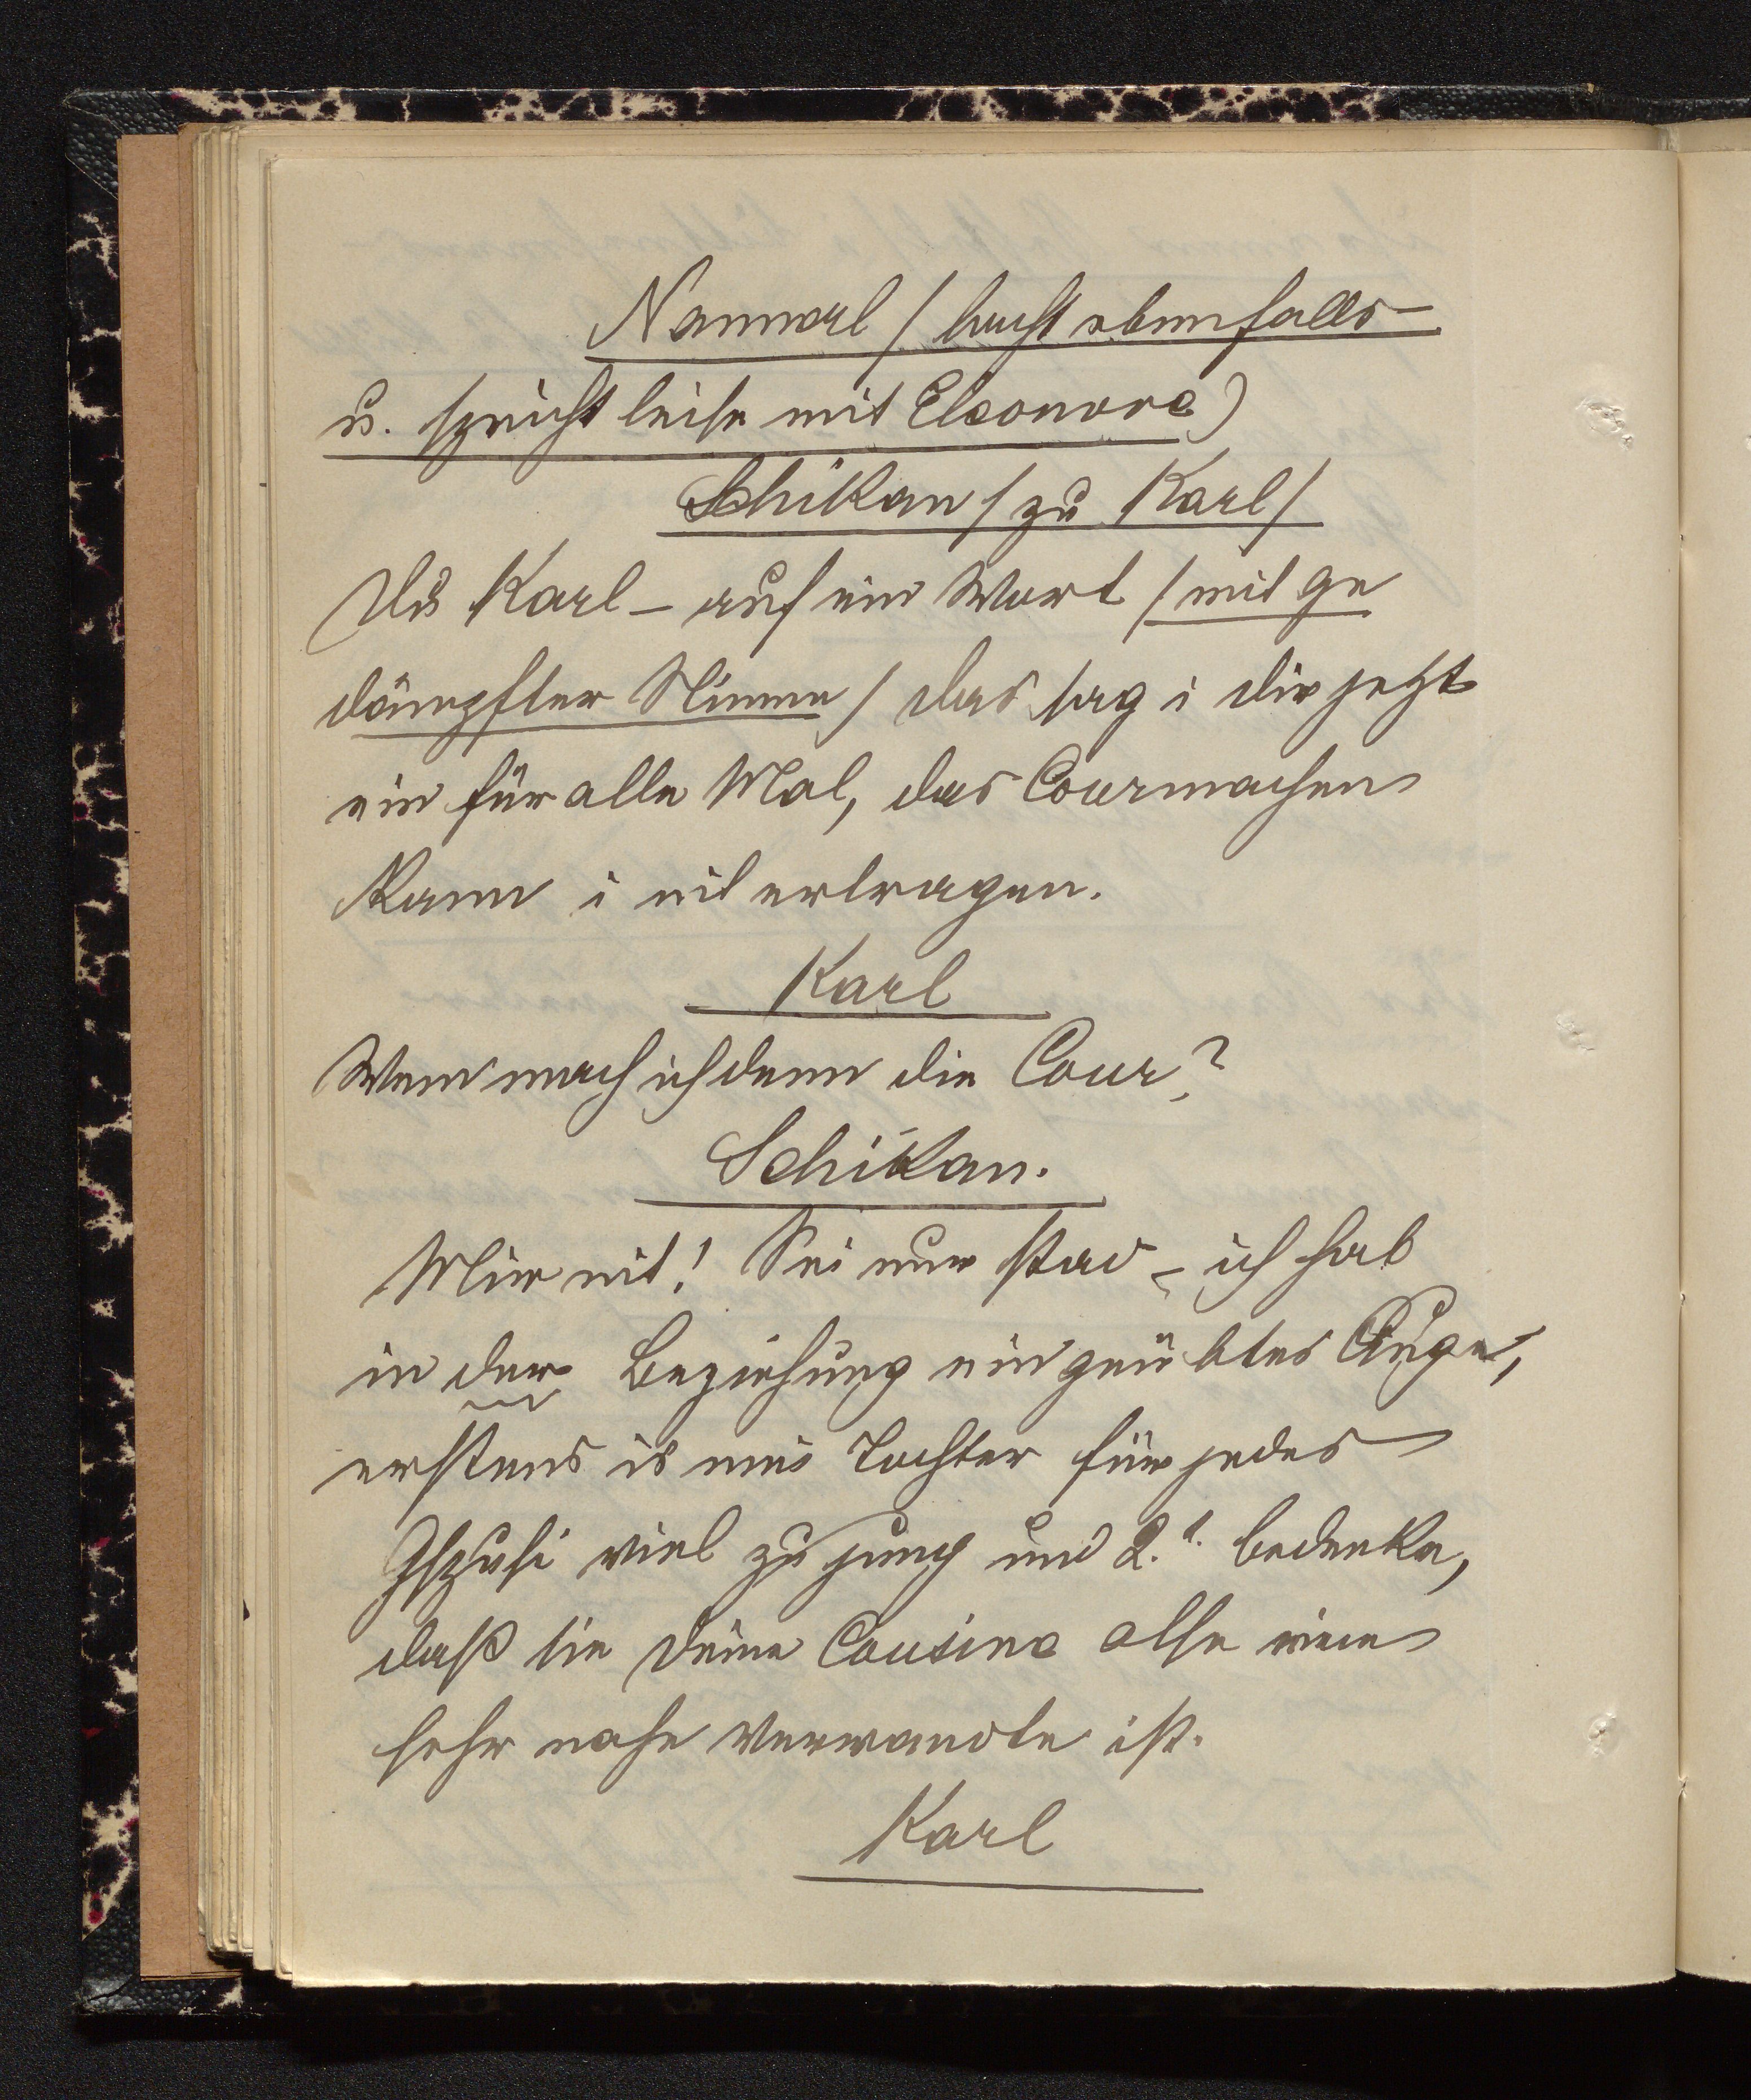 Nannerl / lacht ebenfalls
u. spricht leise mit Eleonore)
Schikan / zu Karl /
Du Karl – auf ein Wort / mit ge
dämpfter Stimme / das sag i dir jetzt
ein für alle Mal, das Courmachen
kann i nit ertragen.
Karl
Wem mach ich denn die Cour?
Schikan.
Mir nit! Sei nur stad – ich hab
in der Beziehung ein geübtes Auge,
erstens is mei Tochter für jedes
Gspusi viel zu jung und 2.t. bedenke,
daß sie deine Cousine also eine
sehr nahe Verwandte ist.
Karl